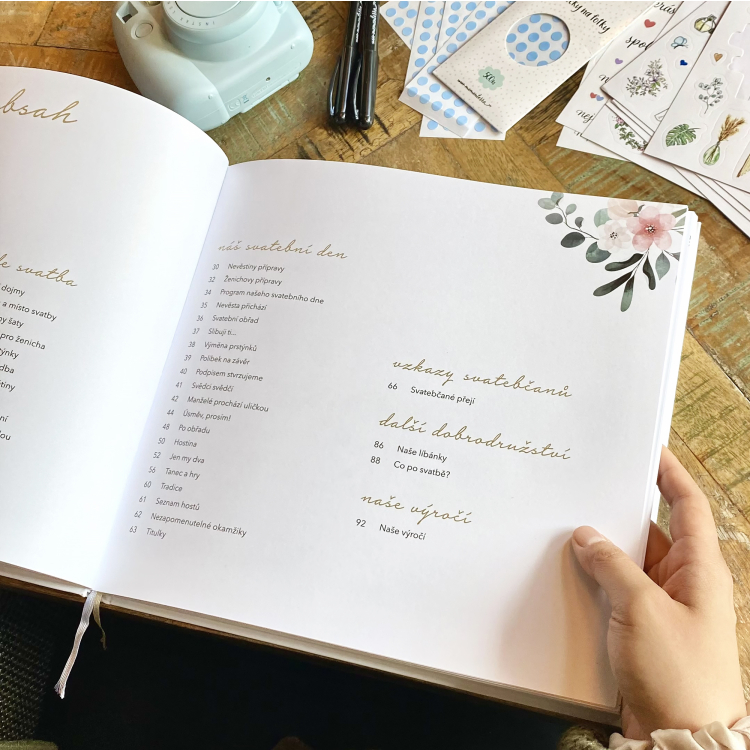 obsah
le svatba
dojmy
a místo svatby
by šaty
pro ženicha
týnky
dba
tiny
ní
ou
náš svatební den
30 Nevěstiny přípravy
32 Ženichovy přípravy
34 Program našeho svatebního dne
35 Nevěsta přichází
36 Svatební obřad
37 Slibuji ti...
38 Výměna prstýnků
39 Polibek na závěr
40 Podpisem stvrzujeme
41 Svědci svědčí
42 Manželé prochází uličkou
44 Úsměv, prosím!
48 Po obřadu
50 Hostina
52 Jen my dva
56 Tanec a hry
60 Tradice
61 Seznam hostů
62 Nezapomenutelné okamžiky
63 Titulky
vzkazy svatebčanů
66 Svatebčané přejí
další dobrodružství
86 Naše líbánky
88 Co po svatbě?
naše výročí
92 Naše výročí
na fotky